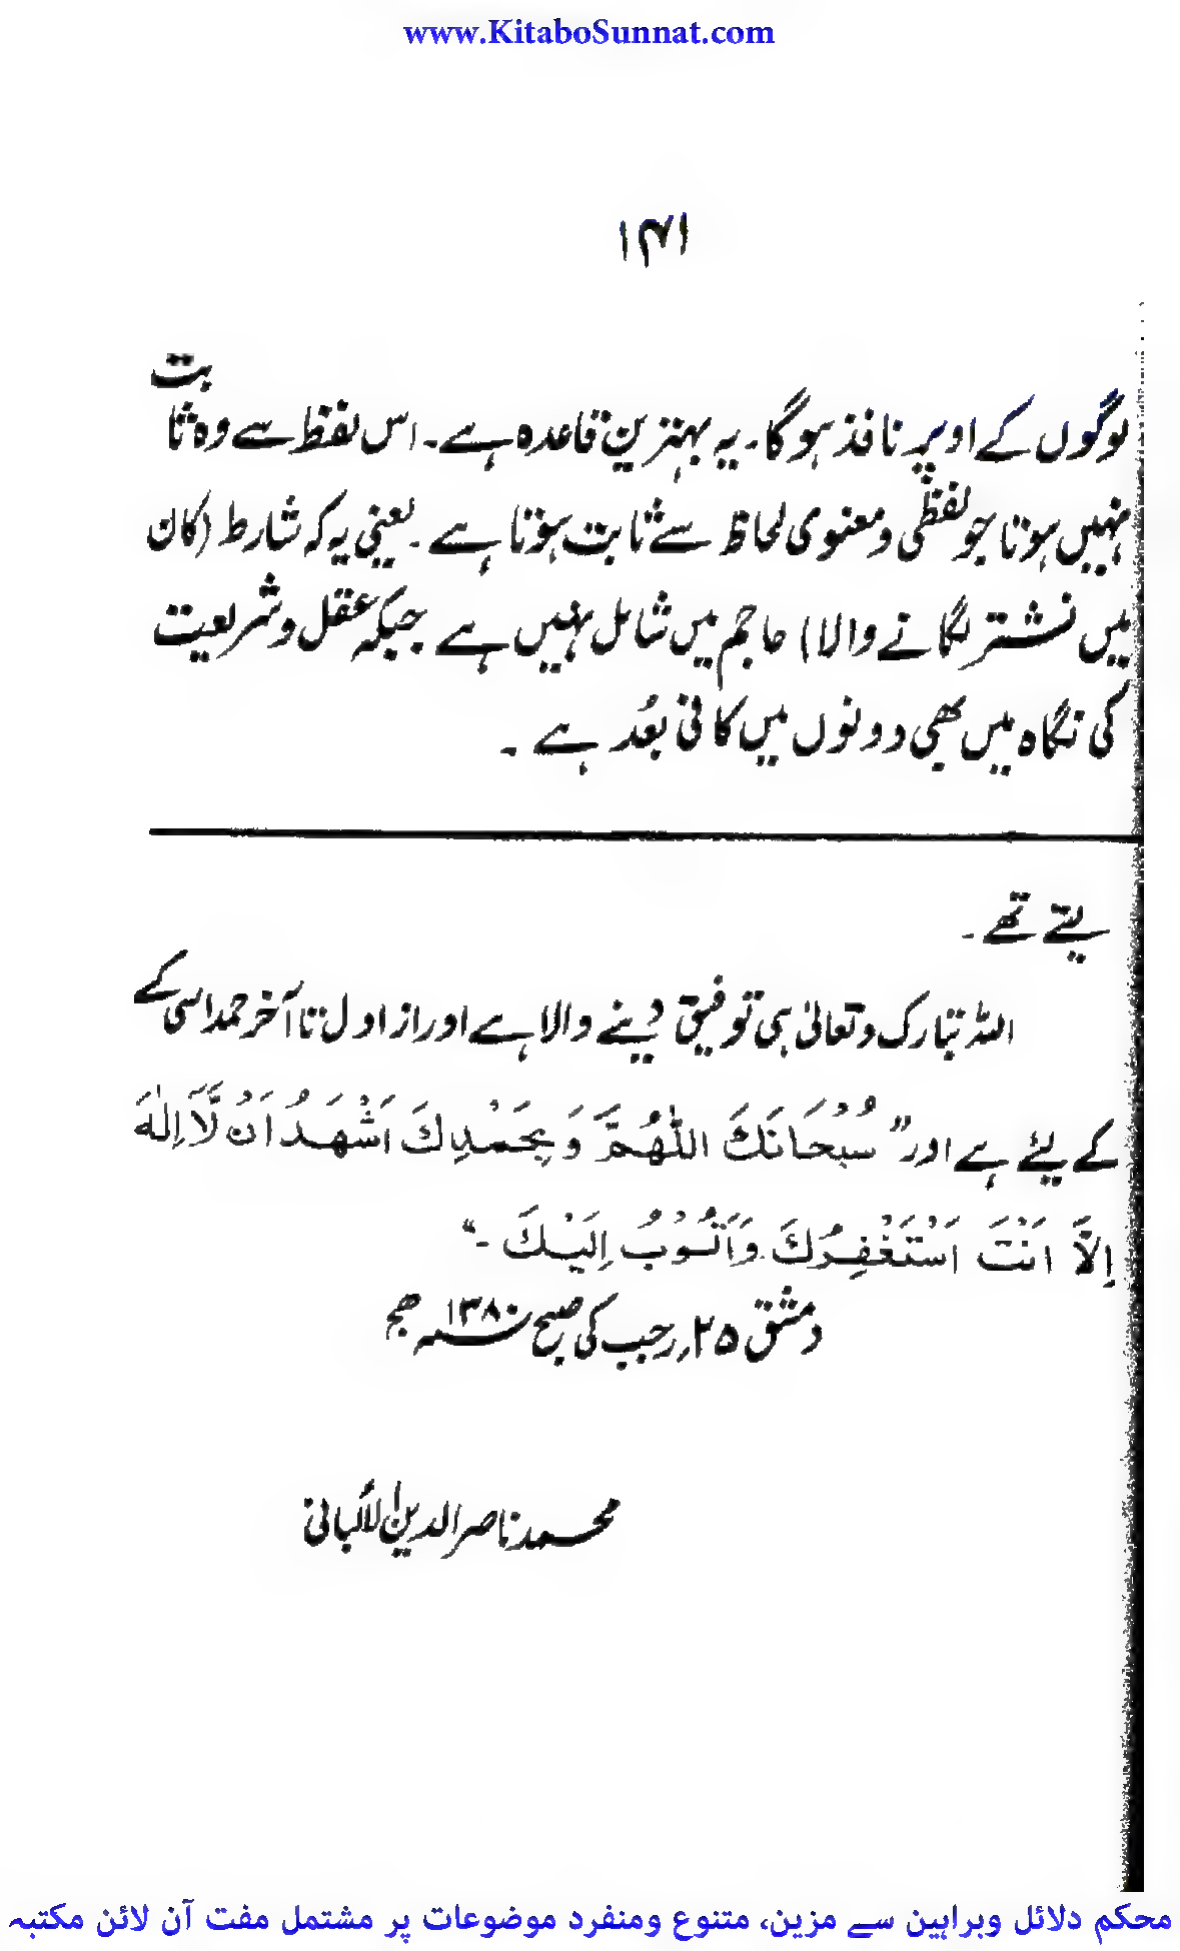 www.KitaboSunnat.com
۱۴۱
لوگوں کے اوپر نافذ ہوگا۔ یہ بہترین قاعدہ ہے۔ اس لفظ سے وہ ثابت
نہیں ہوتا جو لفظی و معنوی لحاظ سے ثابت ہوتا ہے۔ یعنی یہ کہ شارط (کان
میں نشتر لگانے والا) حاجم میں شامل نہیں ہے جبکہ عقل و شریعت
کی نگاہ میں بھی دونوں میں کافی بُعد ہے ۔
یتے تھے ۔
اللہ تبارک و تعالیٰ ہی توفیق دینے والا ہے اور از اول تا آخر حمد اسی کے
کے لئے ہے اور ”سُبْحَانَكَ اللّٰهُمَّ وَبِحَمْدِكَ اَشْهَدُ اَنْ لَّآ اِلٰهَ
اِلَّا اَنْتَ اَسْتَغْفِرُكَ وَاَتُوْبُ اِلَيْكَ ۔“
دمشق ۲۵؍ رجب کی صبح ۱۳۸۰؁ھج
محمد ناصر الدین الألبانی
محکم دلائل وبراہین سے مزین، متنوع ومنفرد موضوعات پر مشتمل مفت آن لائن مکتبہ